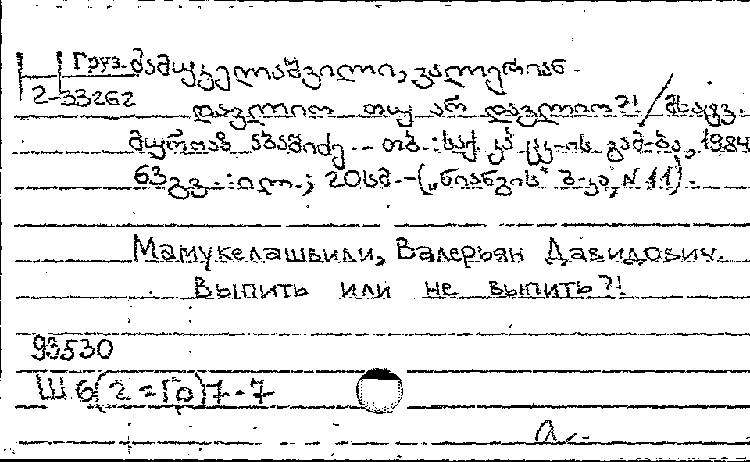 Груз. მამუკელაშვილი, ვალერიან.
2-33262
დავლიოთ თუ არ დავლიოთ?! / მხატვ.
მურთაზ აბაშიძე. - თბ.: საქ. კპ ცკ-ის გამ-ბა, 1984
63 გვ.: ილ.; 20 სმ. - („ნიანგის" ბ-კა, N 11).
Мамукелашвили, Валерьян Давидович.
Выпить или не выпить?!
93530
Ш6(2=Гр)7-7